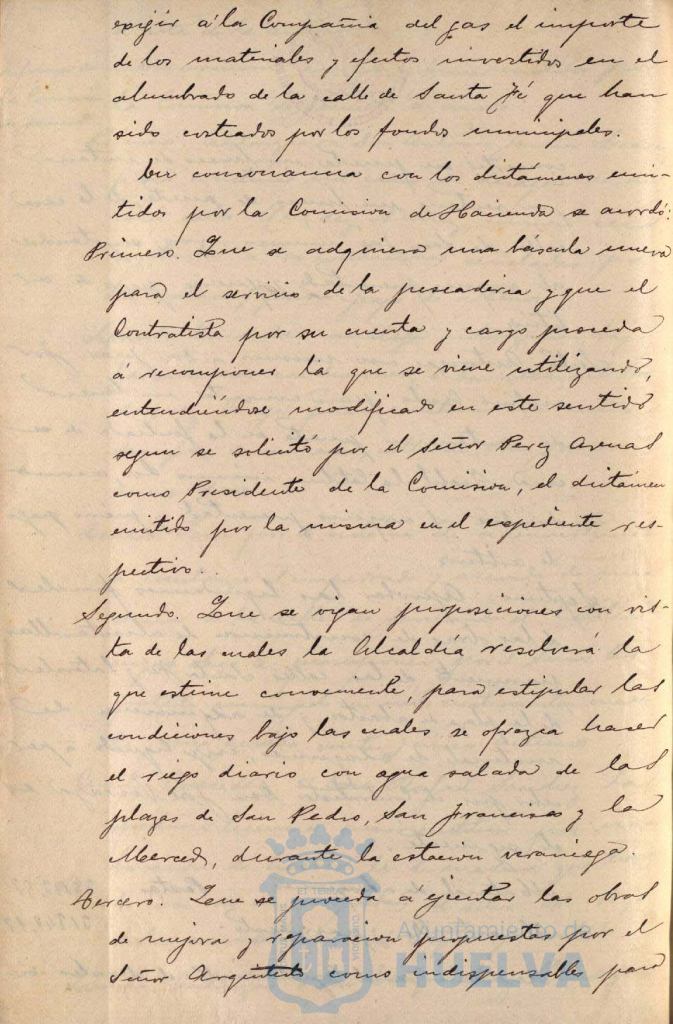 exigir á la Compañia del gas el importe
de los materiales y efectos invertidos en el
alumbrado de la calle de Santa Fé que han
sido costeados por los fondos municipales.
En consonancia con los dictámenes emi-
tidos por la Comision de Hacienda se acordó:
Primero. Que se adquiera una báscula nueva
para el servicio de la pescaderia y que el
Contratista por su cuenta y cargo proceda
á recomponer la que se viene utilizando,
entendiéndose modificado en este sentido
segun se solicitó por el Señor Perez Arenas
como Presidente de la Comision, el dictámen
emitido por la misma en el expediente res-
pectivo.
Segundo. Que se oigan proposiciones con vis-
ta de las cuales la Alcaldía resolverá la
que estime conveniente, para estipular las
condiciones bajo las cuales se ofrezca hacer
el riego diario con agua salada de las
plazas de San Pedro, San Francisco y la
Merced, durante la estacion veraniega.
Tercero. Que se proceda á ejecutar las obras
de mejora y reparacion propuestas por el
Señor Arquitecto como indispensables para
Ayuntamiento de
HUELVA